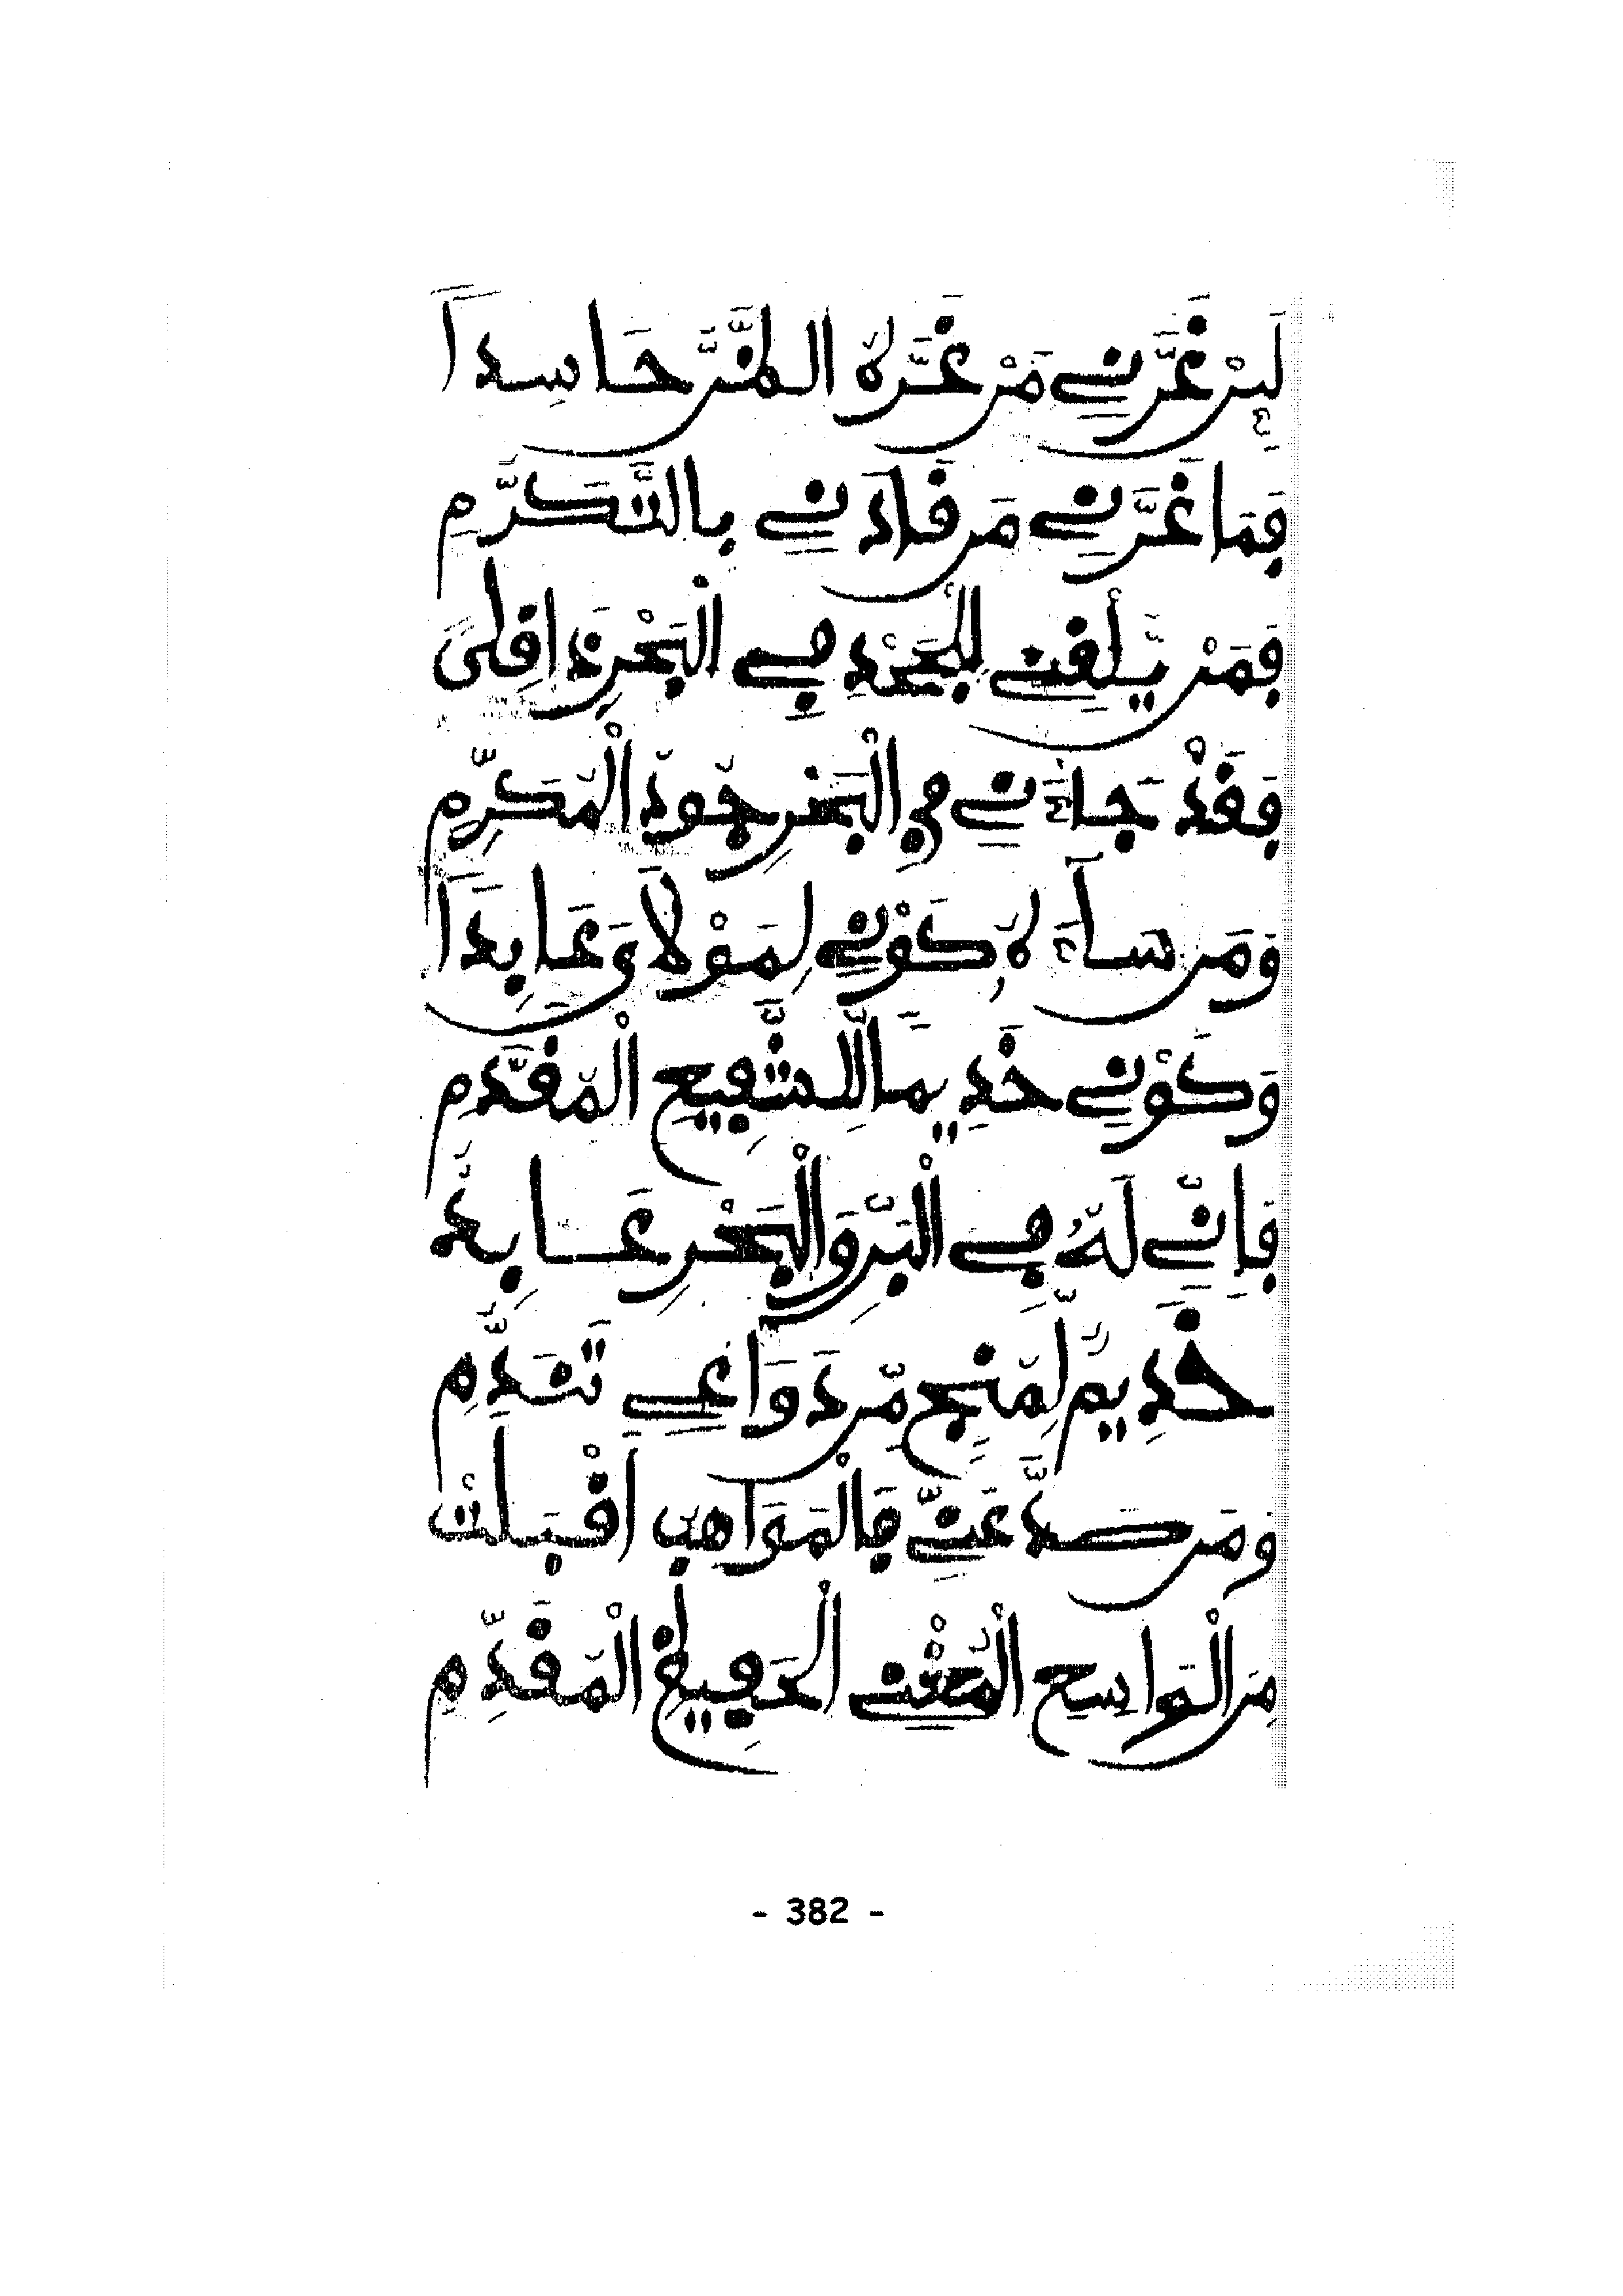 لَئِنْ غَرَّنِي مَنْ غَرَّهُ الظَّنُّ حَاسِداً
فَمَا غَرَّنِي مَن قَادَنِي بِالتَّكَرُّمِ
فَمَنْ يَلْقَنِي لِلْبَحْرِ فِي الْبَحْرِ ذَا قِلىً
فَقَدْ جَاءَنِي فِي الْبَحْرِ جُودُ الْمُكَرِّمِ
وَمَن سَاءَهُ كَوْنِي لِمَوْلَايَ عَابِداً
وَكَوْنِي خَدِيماً لِلشَّفِيعِ الْمُقَدَّمِ
فَإِنِّي لَهُ فِي الْبَرِّ وَالْبَحْرِ عَابِدٌ
خَدِيمٌ لِّمُنْجٍ مِّن دَوَاعِي تَنَدُّمِ
وَمَن صَدَّ عَنِّي فَالْمَوَاهِبُ أَقْبَلَتْ
مِنَ الْوَاسِعِ الْمُغْنِي الْحَفِيظِ الْمُقَدِّمِ
- 382 -